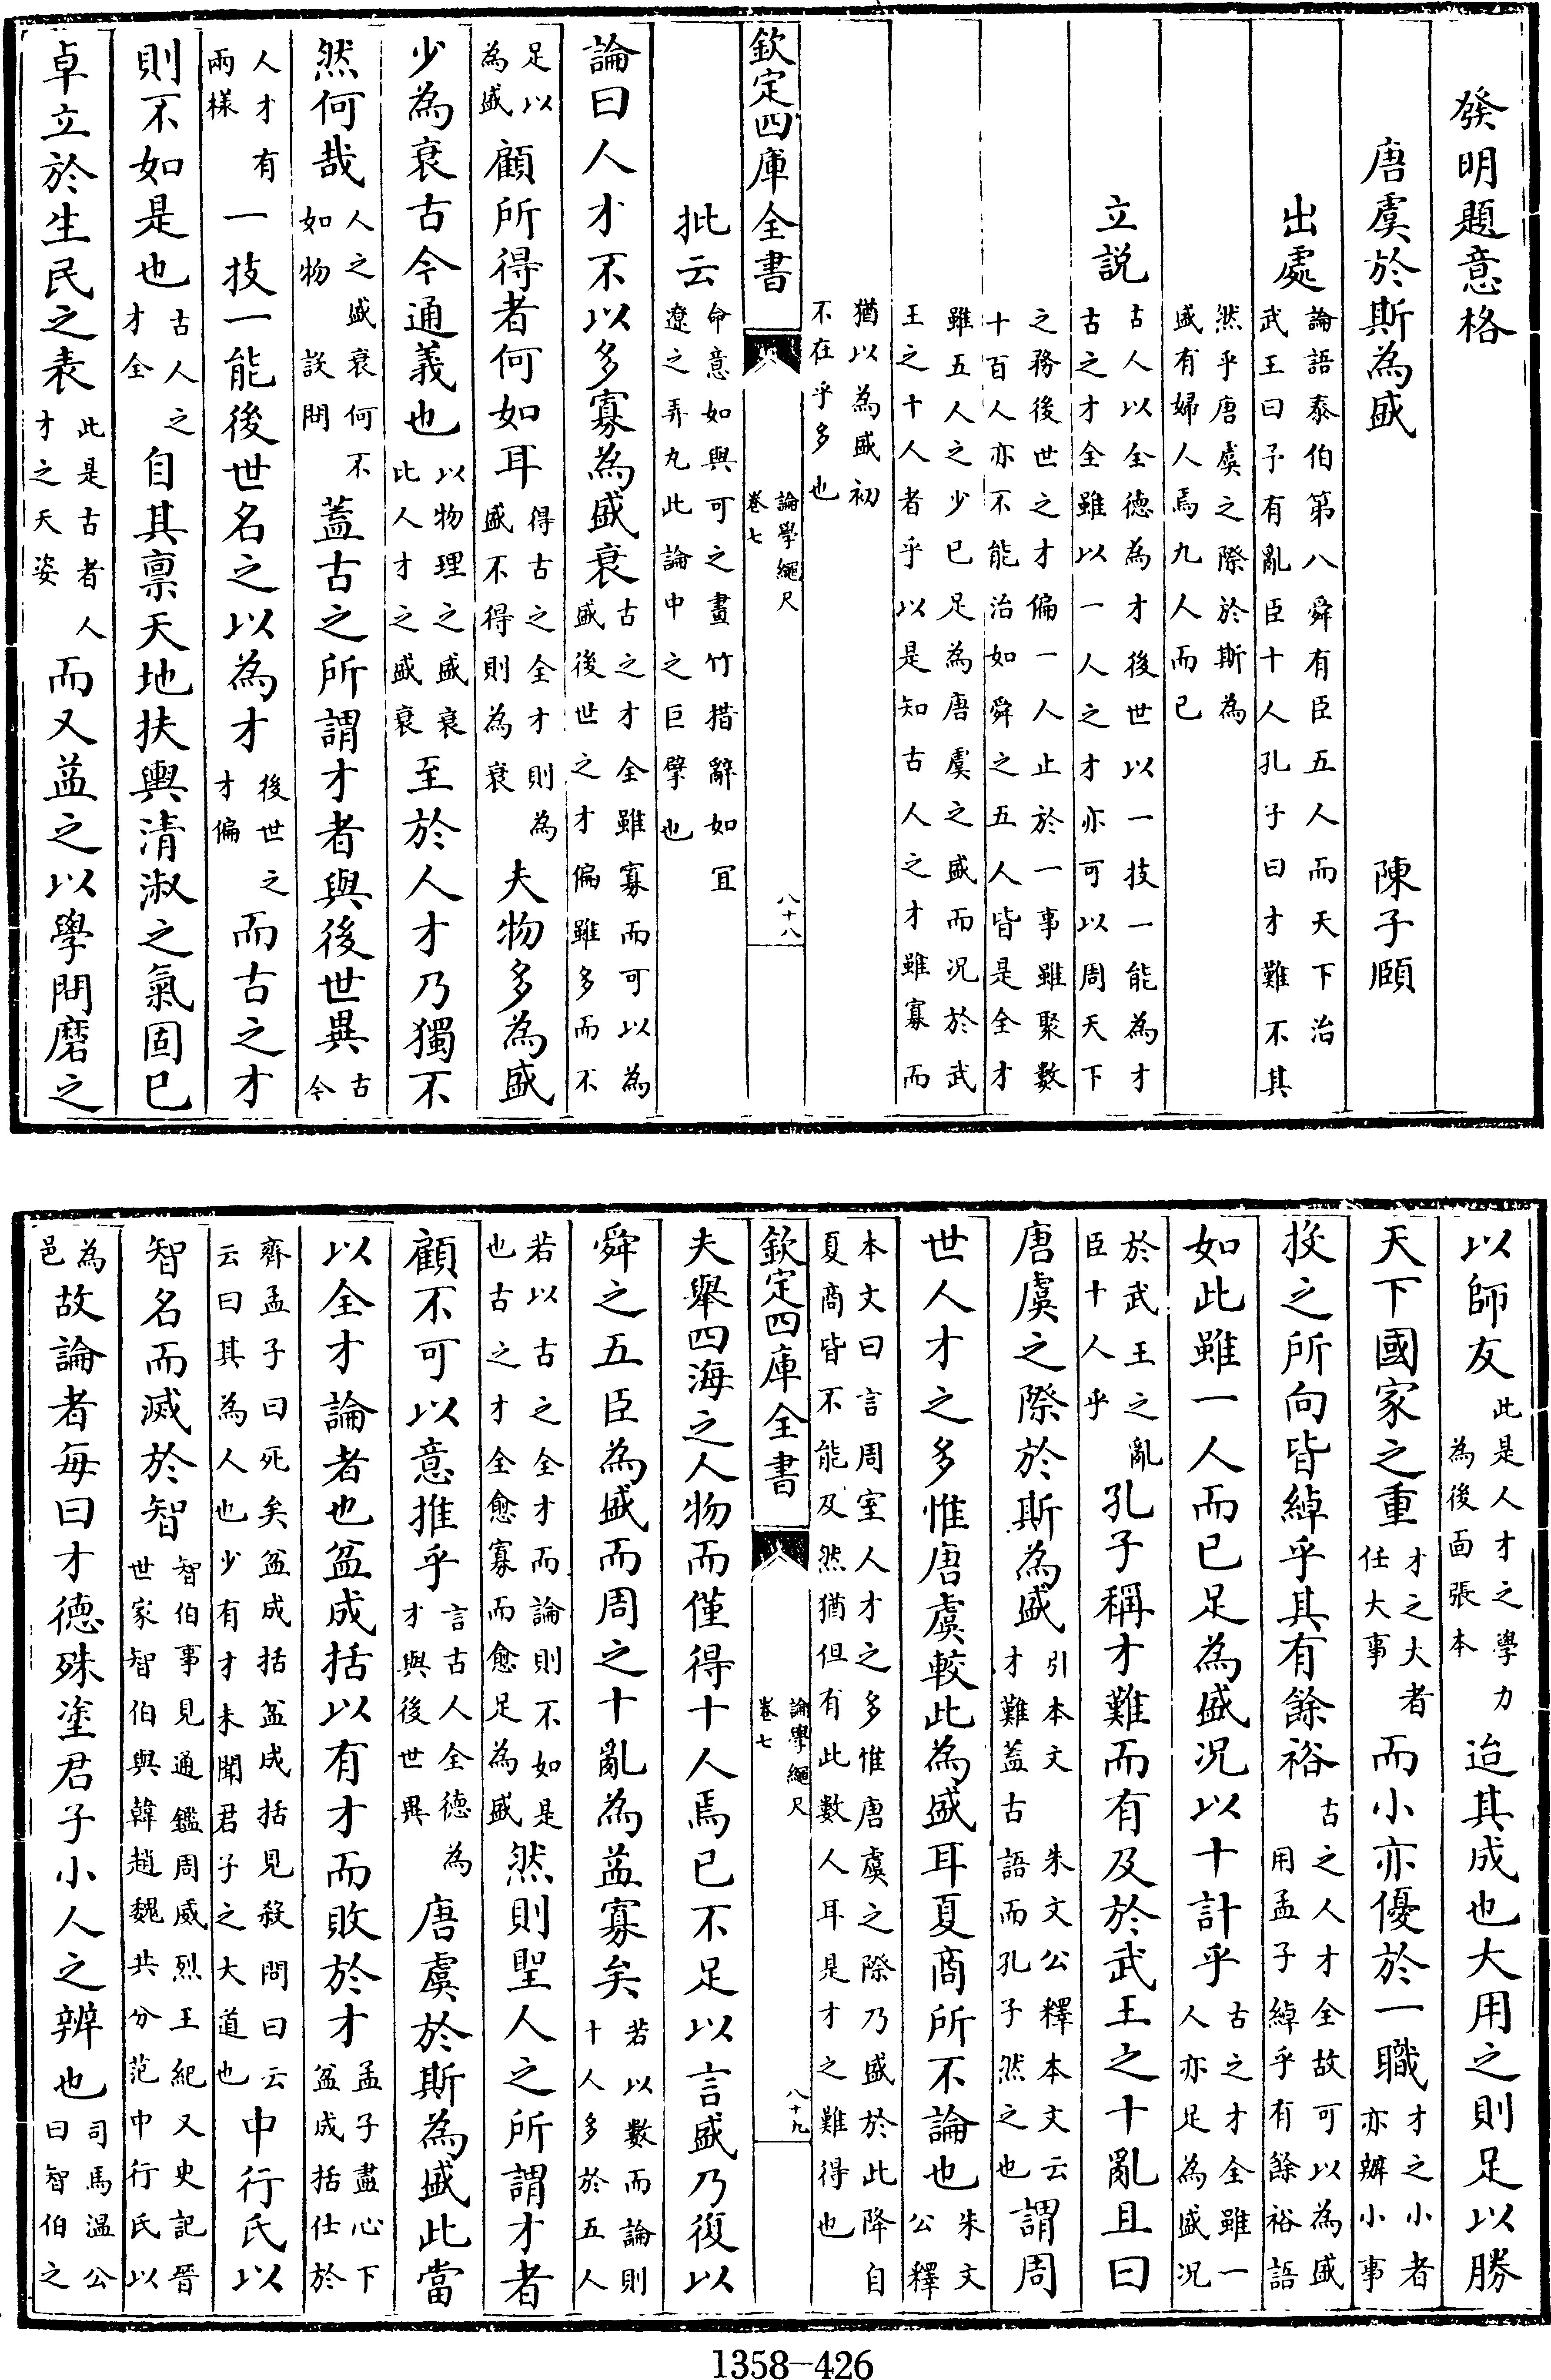 發明題意格
唐虞於斯為盛　陳子頤
出處　論語泰伯第八舜有臣五人而天下治
武王曰予有亂臣十人孔子曰才難不其
然乎唐虞之際於斯為
盛有婦人焉九人而已
立説　古人以全德為才後世以一技一能為才
古之才全雖以一人之才亦可以周天下
之務後世之才偏一人止於一事雖聚數
十百人亦不能治如舜之五人皆是全才
雖五人之少已足為唐虞之盛而况於武
王之十人者乎以是知古人之才雖寡而
猶以為盛初
不在乎多也
欽定四庫全書　論學繩尺
卷七　八十八
批云　命意如與可之畫竹措辭如冝
遼之弄丸此論中之巨擘也
論曰人才不以多寡為盛衰　古之才全雖寡而可以為
盛後世之才偏雖多而不
足以
為盛　顧所得者何如耳　得古之全才則為
盛不得則為衰　夫物多為盛
少為衰古今通義也　以物理之盛衰
此人才之盛衰　至於人才乃獨不
然何哉　人之盛衰何不
如物　設問　蓋古之所謂才者與後世異　古
今
人才有
兩樣　一技一能後世名之以為才　後世之
才偏　而古之才
則不如是也　古人之
才全　自其禀天地扶輿清淑之氣固已
卓立於生民之表　此是古者人
才之天姿　而又益之以學問磨之
以師友　此是人才之學力
為後面張本　迨其成也大用之則足以勝
天下國家之重　才之大者
任大事　而小亦優於一職　才之小者
亦辦小事
投之所向皆綽乎其有餘裕　古之人才全故可以為盛
用孟子綽乎有餘裕語
如此雖一人而已足為盛况以十計乎　古之才全雖一
人亦足為盛况
於武王之亂
臣十人乎　孔子稱才難而有及於武王之十亂且曰
唐虞之際於斯為盛　引本文　朱文公釋本文云
才難蓋古語而孔子然之也　謂周
世人才之多惟唐虞較此為盛耳夏商所不論也　朱文
公釋
本文曰言周室人才之多惟唐虞之際乃盛於此降自
夏商皆不能及然猶但有此數人耳是才之難得也
欽定四庫全書　論學繩尺
卷七　八十九
夫舉四海之人物而僅得十人焉已不足以言盛乃復以
舜之五臣為盛而周之十亂為益寡矣　若以數而論則
十人多於五人
若以古之全才而論則不如是
也古之才全愈寡而愈足為盛　然則聖人之所謂才者
顧不可以意推乎　言古人全德為
才與後世異　唐虞於斯為盛此當
以全才論者也盆成括以有才而敗於才　孟子盡心下
盆成括仕於
齊孟子曰死矣盆成括盆成括見殺問曰云
云曰其為人也少有才未聞君子之大道也　中行氏以
智名而滅於智　智伯事見通鑑周威烈王紀又史記晉
世家智伯與韓趙魏共分范中行氏以
為
邑　故論者每曰才德殊塗君子小人之辨也　司馬温公
曰智伯之
1358－426